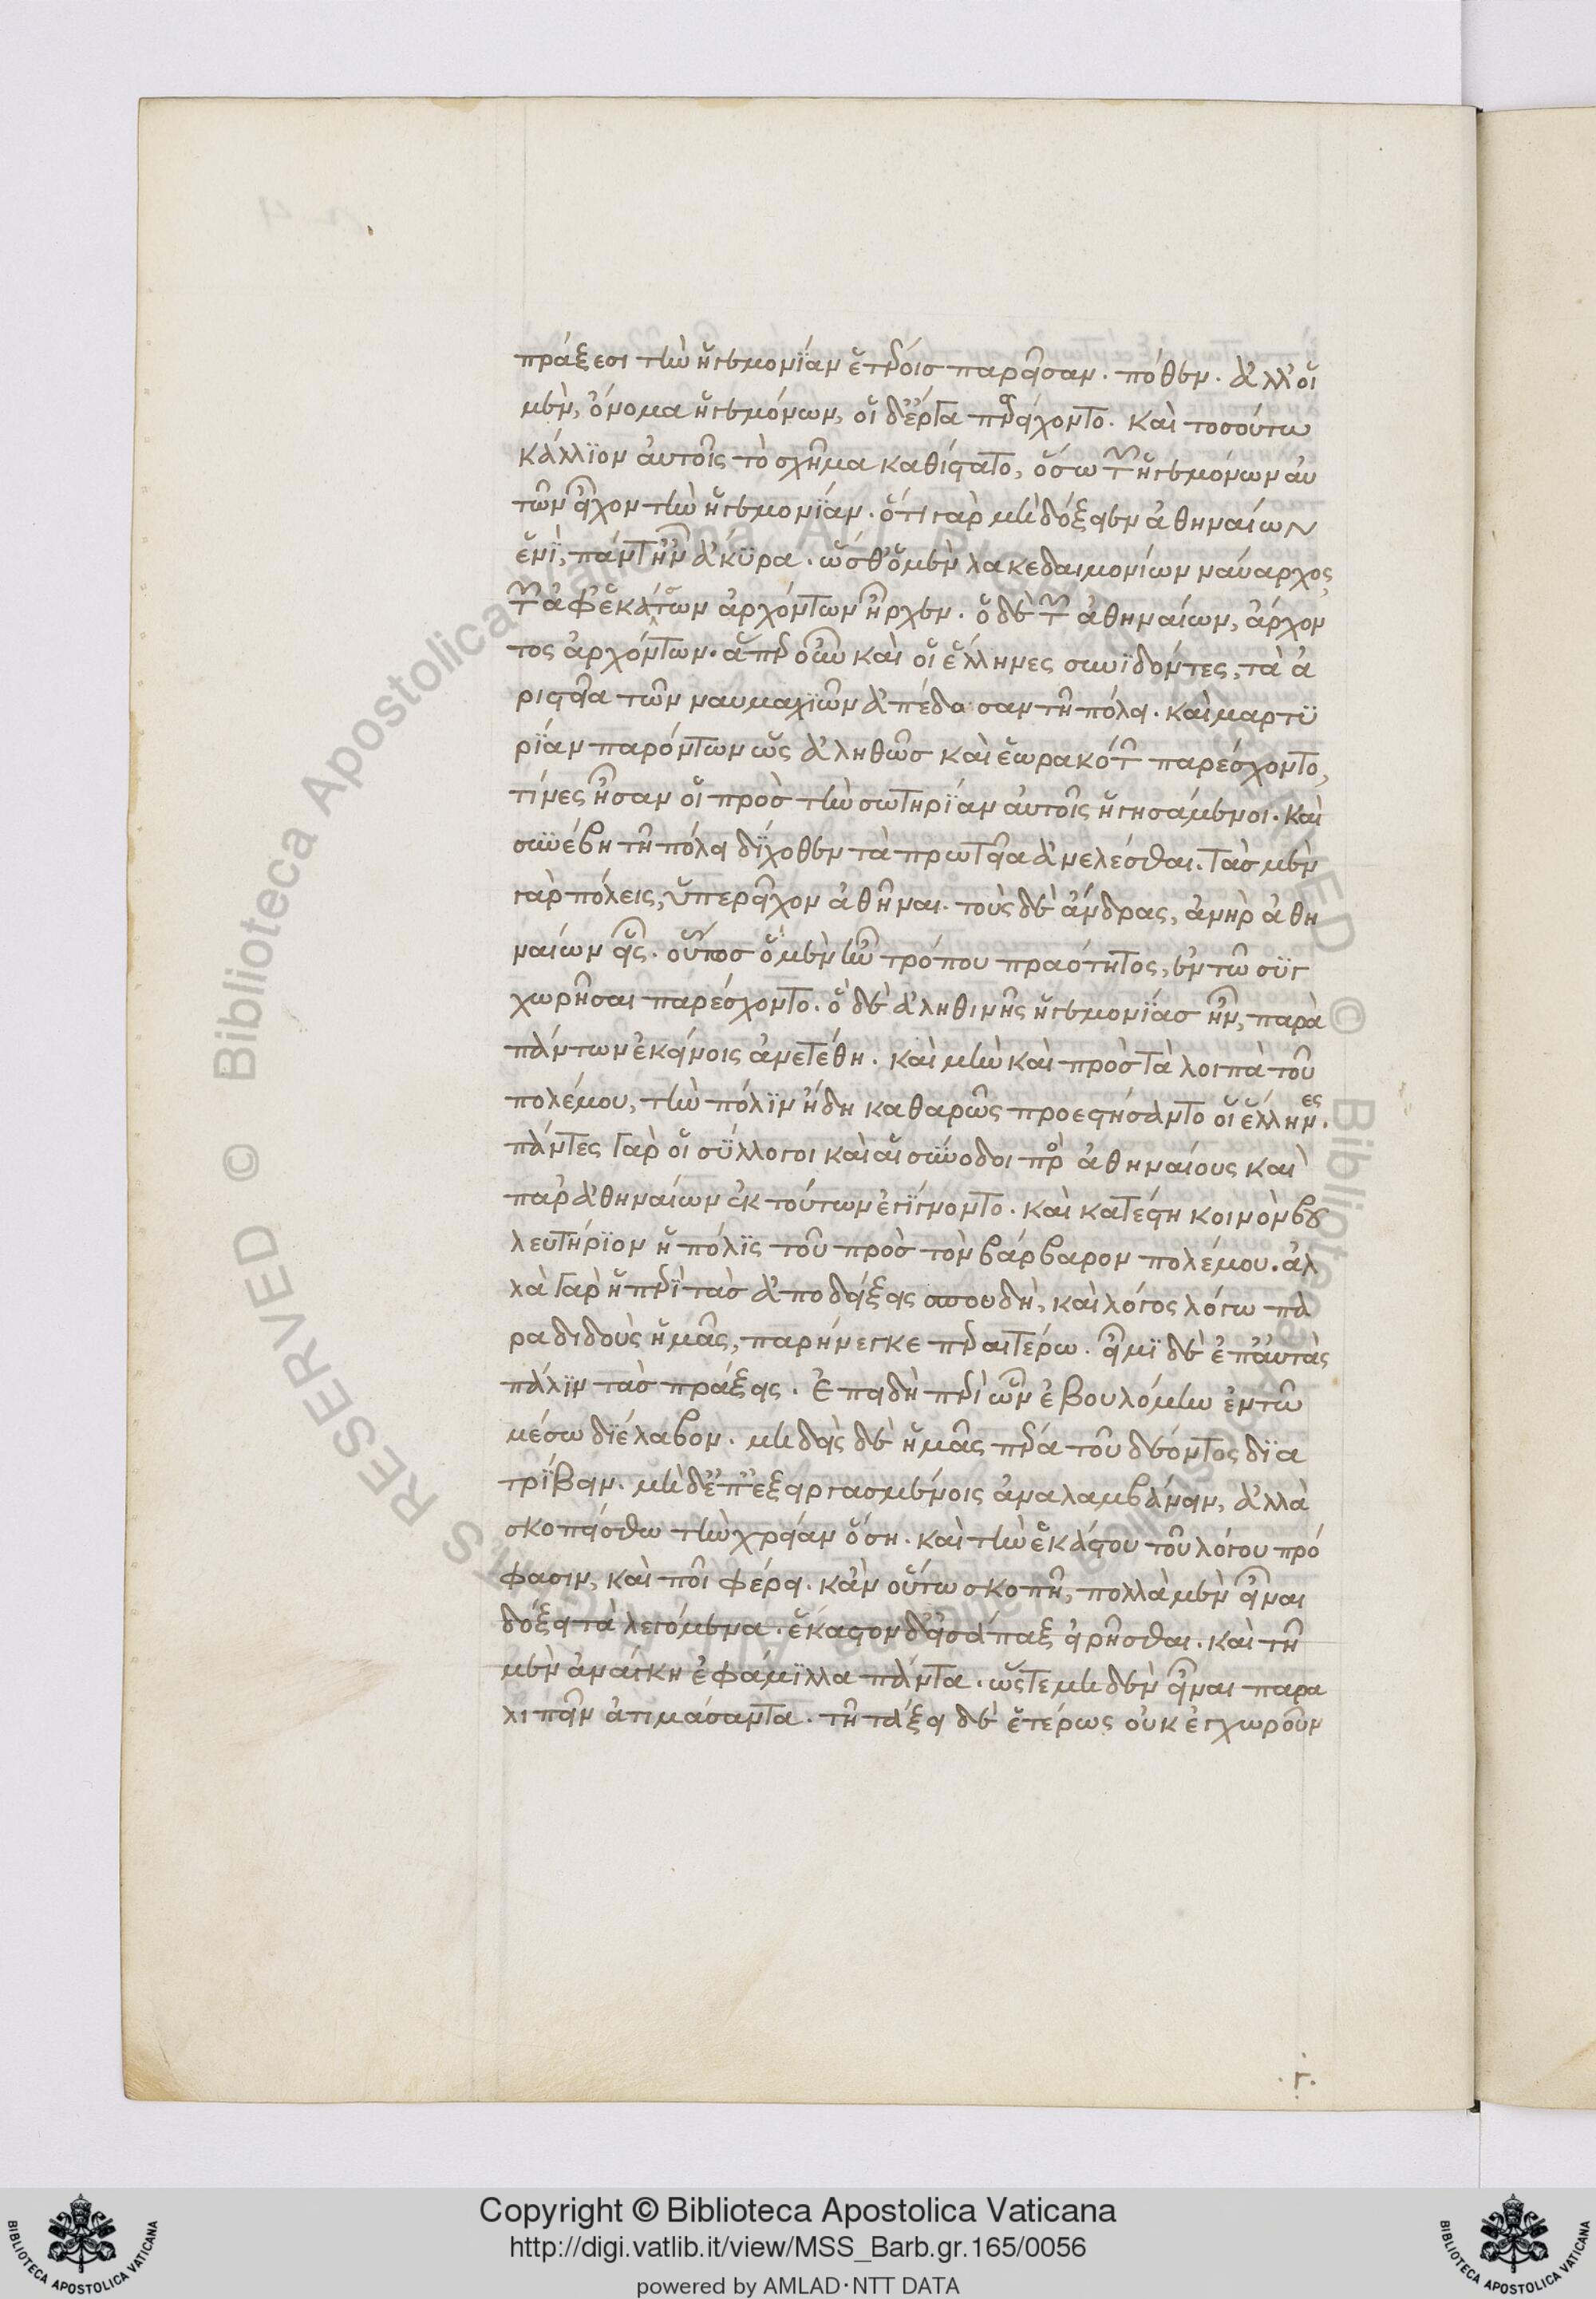 πράξεσι τὴν ἡγεμονίαν ἑτέροις παρεῖσαν. πόθεν. ἀλλ' οἱ
μὲν, ὄνομα ἡγεμόνων, οἱ δ' ἔργα παρείχοντο. καὶ τοσούτω
κάλλϊον αὐτοῖς τὸ σχῆμα καθίστατο, ὅσω τῶν ἡγεμόνων αὐ
τῶν εἶχον τὴν ἡγεμονΐαν. ὅτι γὰρ μὴ δόξειεν ἀθηναίων
ἑνῒ, πάντ' ἦν ἄκϋρα. ὥσθ' ὁ μὲν λακεδαιμονίων ναύαρχος,
τῶν ἀφ' ἑκάστων ἀρχόντων ἦρχεν. ὁ δὲ τῶν ἀθηναίων, ἄρχον
τος ἀρχόντων. ἅπερ οὖν καὶ οἱ ἕλληνες συνϊδόντες, τὰ ἀ
ριστεῖα τῶν ναυμαχϊῶν ἀπέδοσαν τῆ πόλει. καὶ μαρτϋ
ρΐαν παρόντων ὡς ἀληθῶς καὶ ἑωρακότων παρέσχοντο,
τίνες ἦσαν οἱ πρὸς τὴν σωτηρΐαν αὐτοῖς ἡγησάμενοι. καὶ
συνέβη τῆ πόλει δΐχοθεν τὰ πρωτεῖα ἀνελέσθαι. τὰς μὲν
γὰρ πόλεις, ὑπερεῖχον ἀθῆναι. τοὺς δὲ ἄνδρας, ἀνὴρ ἀθη
ναίων εἷς. οὕτως ὃ μὲν ἦν τρόπου πραότητος, ἐν τῶ σϋγ
χωρῆσαι παρέσχοντο. ὃ δὲ ἀληθινῆς ἡγεμονΐας ἦν, παρὰ
πάντων ἐκείνοις ἀνετέθη. καὶ μὴν καὶ πρὸς τὰ λοιπὰ τοῦ
πολέμου, τὴν πόλϊν ἤδη καθαρῶς προεστήσαντο οἱ ἕλληνες.
πάντες γὰρ οἱ σΰλλογοι καὶ αἱ σύνοδοι πρὸς ἀθηναίους καὶ
παρ' ἀθηναίων ἐκ τούτων ἐγΐγνοντο. καὶ κατέστη κοινὸν βου
λευτήρϊον ἡ πόλϊς τοῦ πρὸς τὸν βάρβαρον πολέμου. ἀλ
λὰ γὰρ ἡ περῒ τὰς ἀποδείξεις σπουδὴ, καὶ λόγος λόγω πα
ραδιδοὺς ἡμᾶς, παρήνεγκε περαιτέρω. εἶμϊ δὲ ἐπ' αὐτὰς
πάλϊν τὰς πράξεις. Ἐπειδὴ περὶ ὧν ἐβουλόμην ἐν τῶ
μέσω δϊέλαβον. μηδεὶς δὲ ἡμᾶς πέρα τοῦ δέοντος δϊα
τρΐβειν. μὴ δ' ἐπεξειργασμένοις ἀναλαμβάνειν, ἀλλὰ
σκοπείσθω τὴν χρείαν ὅση. καὶ τὴν ἑκάστου τοῦ λόγου πρό
φασιν, καὶ ποῖ φέρει. κἂν οὕτω σκοπῆ, πολλὰ μὲν εἶναι
δόξει τὰ λεγόμενα. ἕκαστον δ' εἰσάπαξ εἰρῆσθαι. καὶ τῆ
μὲν ἀνάγκη ἐφάμϊλλα πάντα. ὥστε μηδὲν εἶναι παρα
λιπεῖν ἀτιμάσαντα. τῆ τάξει δὲ ἑτέρως οὐκ ἐγχωροῦν
.γ.
Copyright © Biblioteca Apostolica Vaticana
http://digi.vatlib.it/view/MSS_Barb.gr.165/0056
powered by AMLAD·NTT DATA